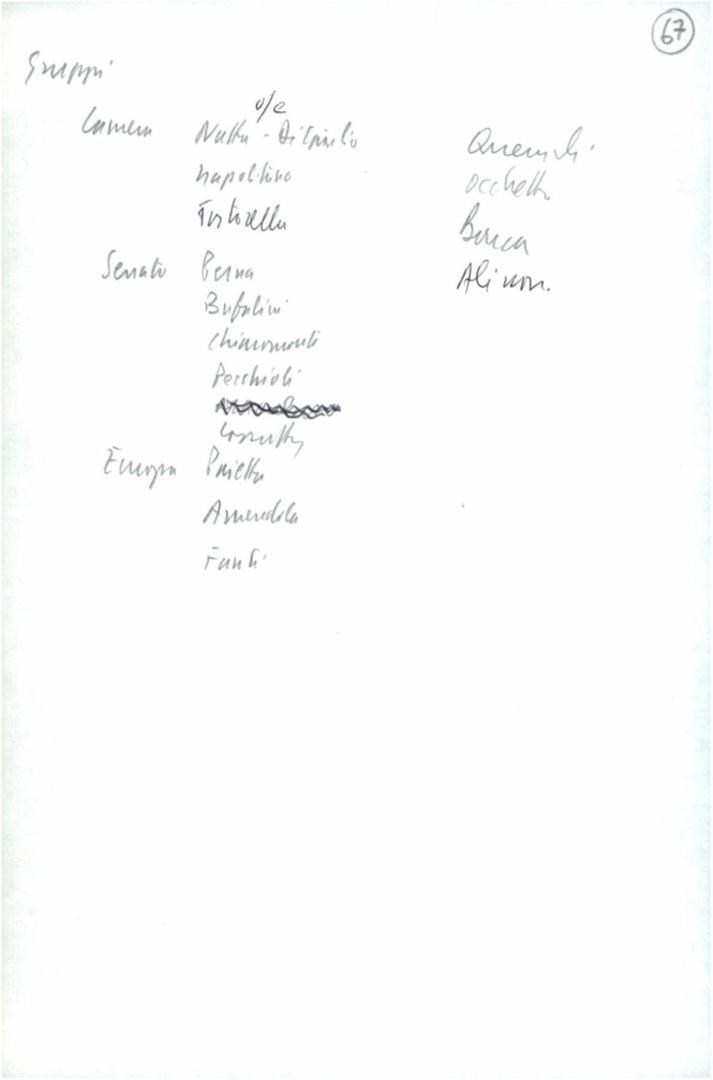 67
Gruppi
o/e
Camera Natta - Di Giulio
Napolitano
Tortorella
Senato Perna
Bufalini
Chiaromonte
Pecchioli
Cossutta
Europa Pajetta
Amendola
Fanti
Quercioli
Occhetto
Birardi
Alinovi